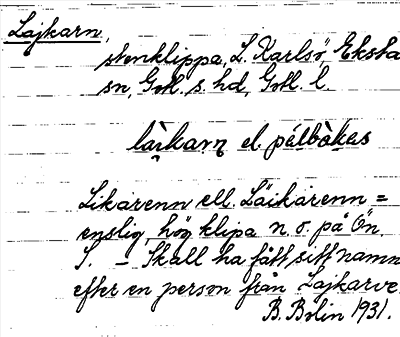 Lajkarn,
stenklippa, L. Karlsö, Eksta
sn, Gotl. s. hd, Gotl. l.
làikarn el. pálbòkas
Likårenn ell. Läikårenn =
enslig, hög klipa n. o. på Ön
S. – Skall ha fått sitt namn
efter en person från Lajkarve.
B. Bolin 1931.